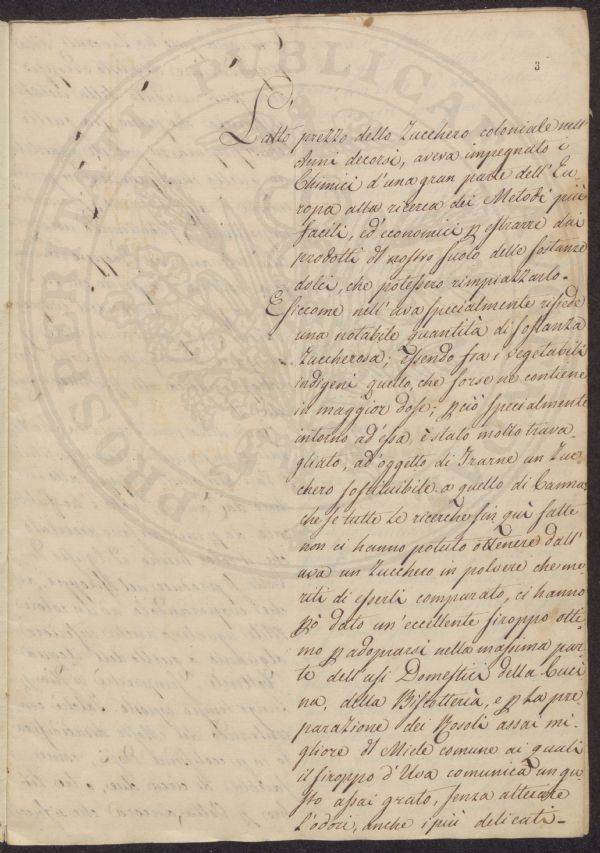 3
L'alto prezzo dello Zucchero coloniale nell'
Anni decorsi, aveva impegnato i
Chimici d'una gran parte dell'Eu
ropa alla ricerca dei Metodi più
facili, ed economici p estrarre dai
prodotti dl nostro suolo delle sostanze
dolci, che potessero rimpiazzarlo.
E siccome nell'uva specialmente risiede
una notabile quantità di sostanza
Zuccherosa; essendo fra i vegetabili
indigeni quello, che forse ne contiene
in maggior dose; pciò specialmente
intorno ad'essa è stato molto trava
gliato, ad'oggetto di Trarne un Zuc
chero sostituibile a quello di Canna
che se tutte le ricerche fin quì fatte
non ci hanno potuto ottenere dall'
uva un Zucchero in polvere che me
riti di esserli comparato, ci hanno
pò dato un'eccellente siroppo otti
mo p adoprarsi nella massima par
te dell'usi Domestici della Cuci
na, della Biscotteria, e p la pre
parazione dei Rosoli assai mi
gliore dl Miele comune ai quali
il siroppo d'Uva comunica un gu
sto assai grato, senza alterare
l'odori, anche i più delicati.
PROSPERITATI PUBLICAE